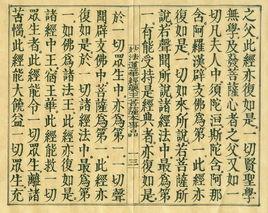 之父此經亦復如是一切賢聖學
無學及發菩薩心者之父又如一
切凡夫人中須陀洹斯陀含阿那
含阿羅漢辟支佛為第一此經亦
復如是一切如來所說若菩薩所
說若聲聞所說諸經法中最為第
一有能受持是經典者亦復如是
妙法蓮華經藥王菩薩本事品
於一切眾生中亦為第一一切聲
聞辟支佛中菩薩為第一此經亦
復如是於一切諸經法中最為第
一如佛為諸法王此經亦復如是
諸經中王宿王華此經能救一切
眾生者此經能令一切眾生離諸
苦惱此經能大饒益一切眾生充